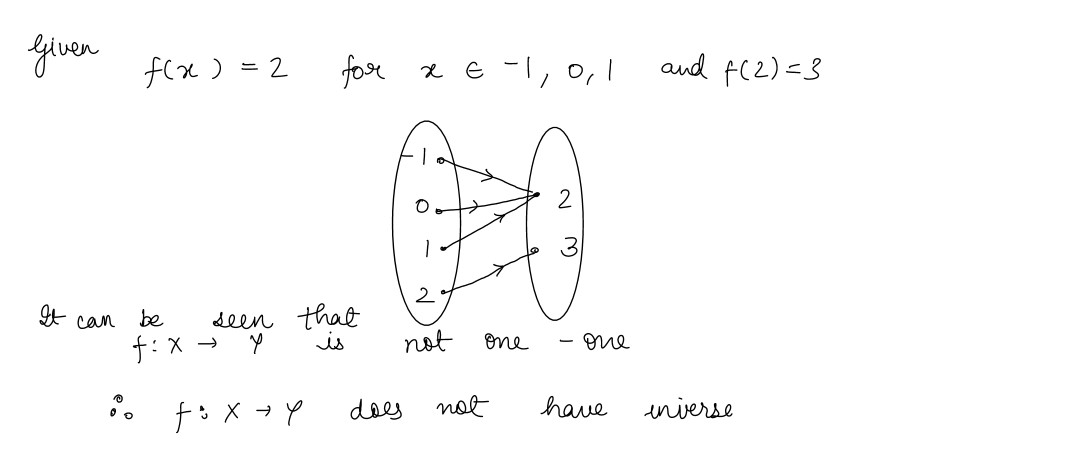 Given
f(x) = 2 for x ∈ -1, 0, 1 and f(2)=3
-1
0
1
2
2
3
It can be seen that
f: X → Y is not one - one
∴ f: X → Y does not have inverse